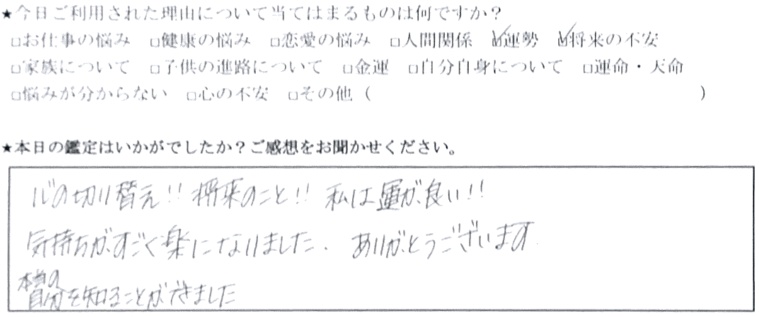 ★今日ご利用された理由について当てはまるものは何ですか？
□お仕事の悩み □健康の悩み □恋愛の悩み □人間関係 ☑運勢 ☑将来の不安
□家族について □子供の進路について □金運 □自分自身について □運命・天命
□悩みが分からない □心の不安 □その他（ ）
★本日の鑑定はいかがでしたか？ご感想をお聞かせください。
心の切り替え!! 将来のこと!! 私は運が良い!!
気持ちがすごく楽になりました. ありがとうございます
本当の
自分を知ることができました